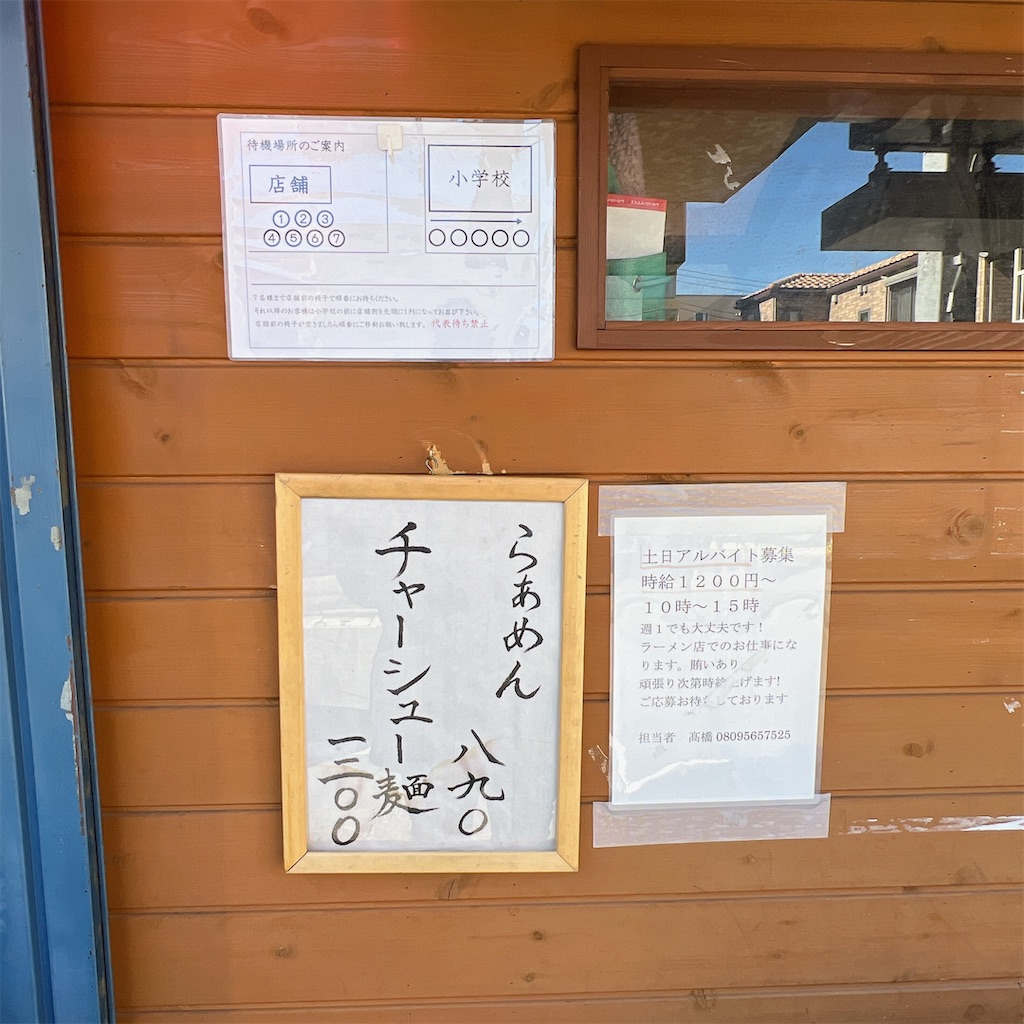 待機場所のご案内
店舗
①②③
④⑤⑥⑦
小学校
7名様まで店舗前の椅子で順番にお待ちください。
それ以降のお客様は小学校の前に店舗側を先頭に1列になってお並び下さい。
店頭前の椅子が空きましたら順番にご移動お願い致します。 代表待ち禁止
らぁめん 八九〇
チャーシュー麺
一二〇〇
土日アルバイト募集
時給1200円〜
10時〜15時
週1でも大丈夫です!
ラーメン店でのお仕事にな
ります。賄いあり。
頑張り次第時給上げます!
ご応募お待ちしております
担当者 髙橋 08095657525